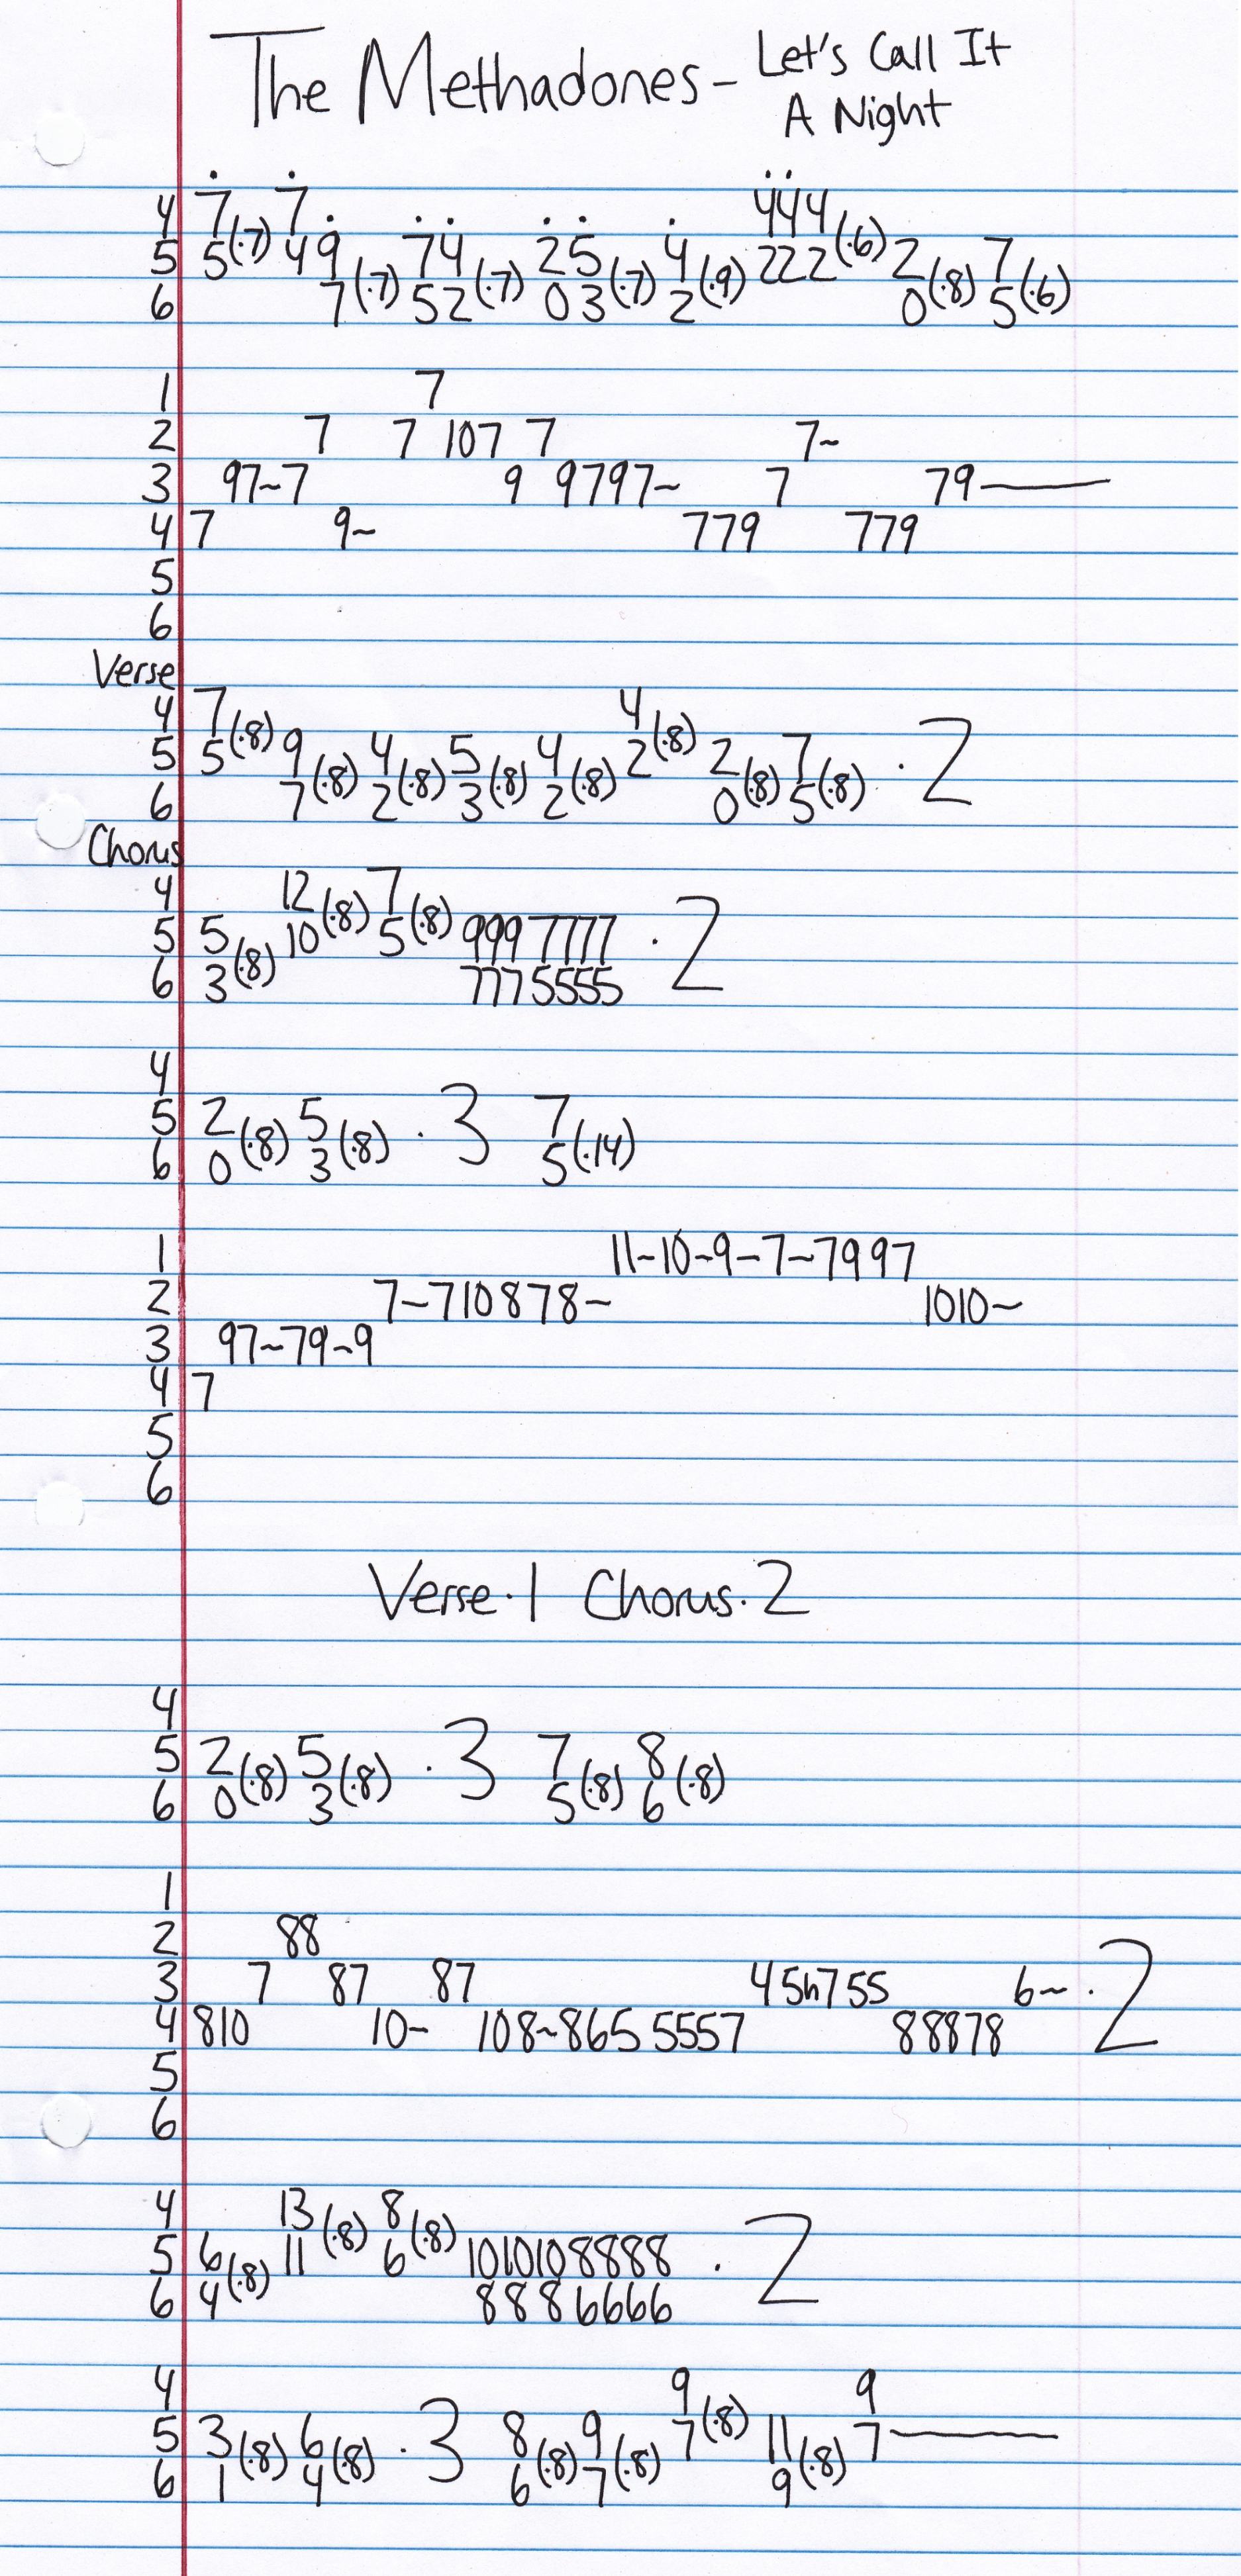 The Methadones - Let's Call It
A Night
4 7 7 444
5 5(·7) 49 74 25 4 222(·6) 2 7
6 7(·7) 52(·7) 03(·7) 2(·9) 0(·8) 5(·6)
1 7
2 7 7 107 7 7~
3 97~7 9 9797~ 7 79———
4 7 9~ 779 779
5
6
Verse
4 7 4
5 5(·8) 9 4 5 4 2(·8) 2 7 · 2
6 7(·8) 2(·8) 3(·8) 2(·8) 0(·8) 5(·8)
Chorus
4 12 7
5 5 10(·8) 5(·8) 999 7777 · 2
6 3(·8) 7775555
4
5 2 5 · 3 7
6 0(·8) 3(·8) 5(·14)
1 11~10~9~7~7997
2 7~710878~ 1010~
3 97~79~9
4 7
5
6
Verse·1 Chorus·2
4
5 2 5 · 3 7 8
6 0(·8) 3(·8) 5(·8) 6(·8)
1
2 88
3 7 87 87 45h755 6~ · 2
4 810 10~ 108~865 5557 88878
5
6
4 13 8
5 6 11(·8) 6(·8) 1010108888 · 2
6 4(·8) 8886666
4 9 9
5 3 6 · 3 8 9 7(·8) 11 7———
6 1(·8) 4(·8) 6(·8) 7(·8) 9(·8)